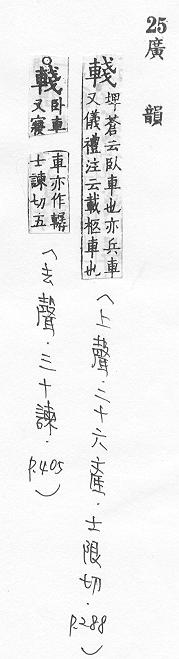 25
廣韻
輚 埤蒼云臥車也亦兵車
又儀禮注云載柩車也
(上聲.二十六產.士限切.p.288)
輚 臥車
又寢
車亦作轏
士諫切五
(去聲.三十諫.p.405)